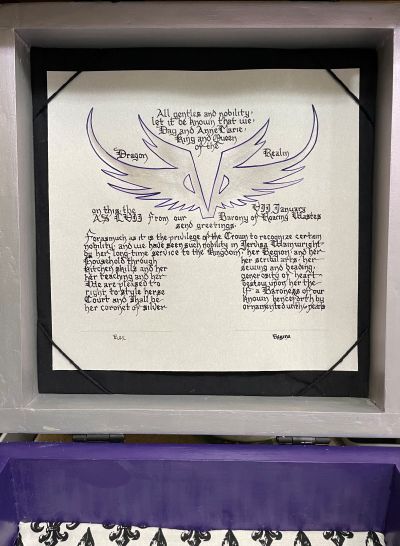 All gentles and nobility,
let it be known that we,
Dag and AnneLarie,
King and Queen
of the
Dragon Realm
on this the VII January
AS LVII from our Barony of Roaring Wastes
send greetings.
Forasmuch as it is the privilege of the Crown to recognize certain
nobility, and we have seen such nobility in Jerusa Wainwright
by her long-time service to the Kingdom, her Region, and her
Household through her scribal arts, her
kitchen skills and her sewing and beading,
her teaching and her generosity of heart
We are pleased to bestow upon her the
right to style herse lf a Baroness of our
Court and shall be known henceforth by
her coronet of silver ornamented with pearls
Rex Regina